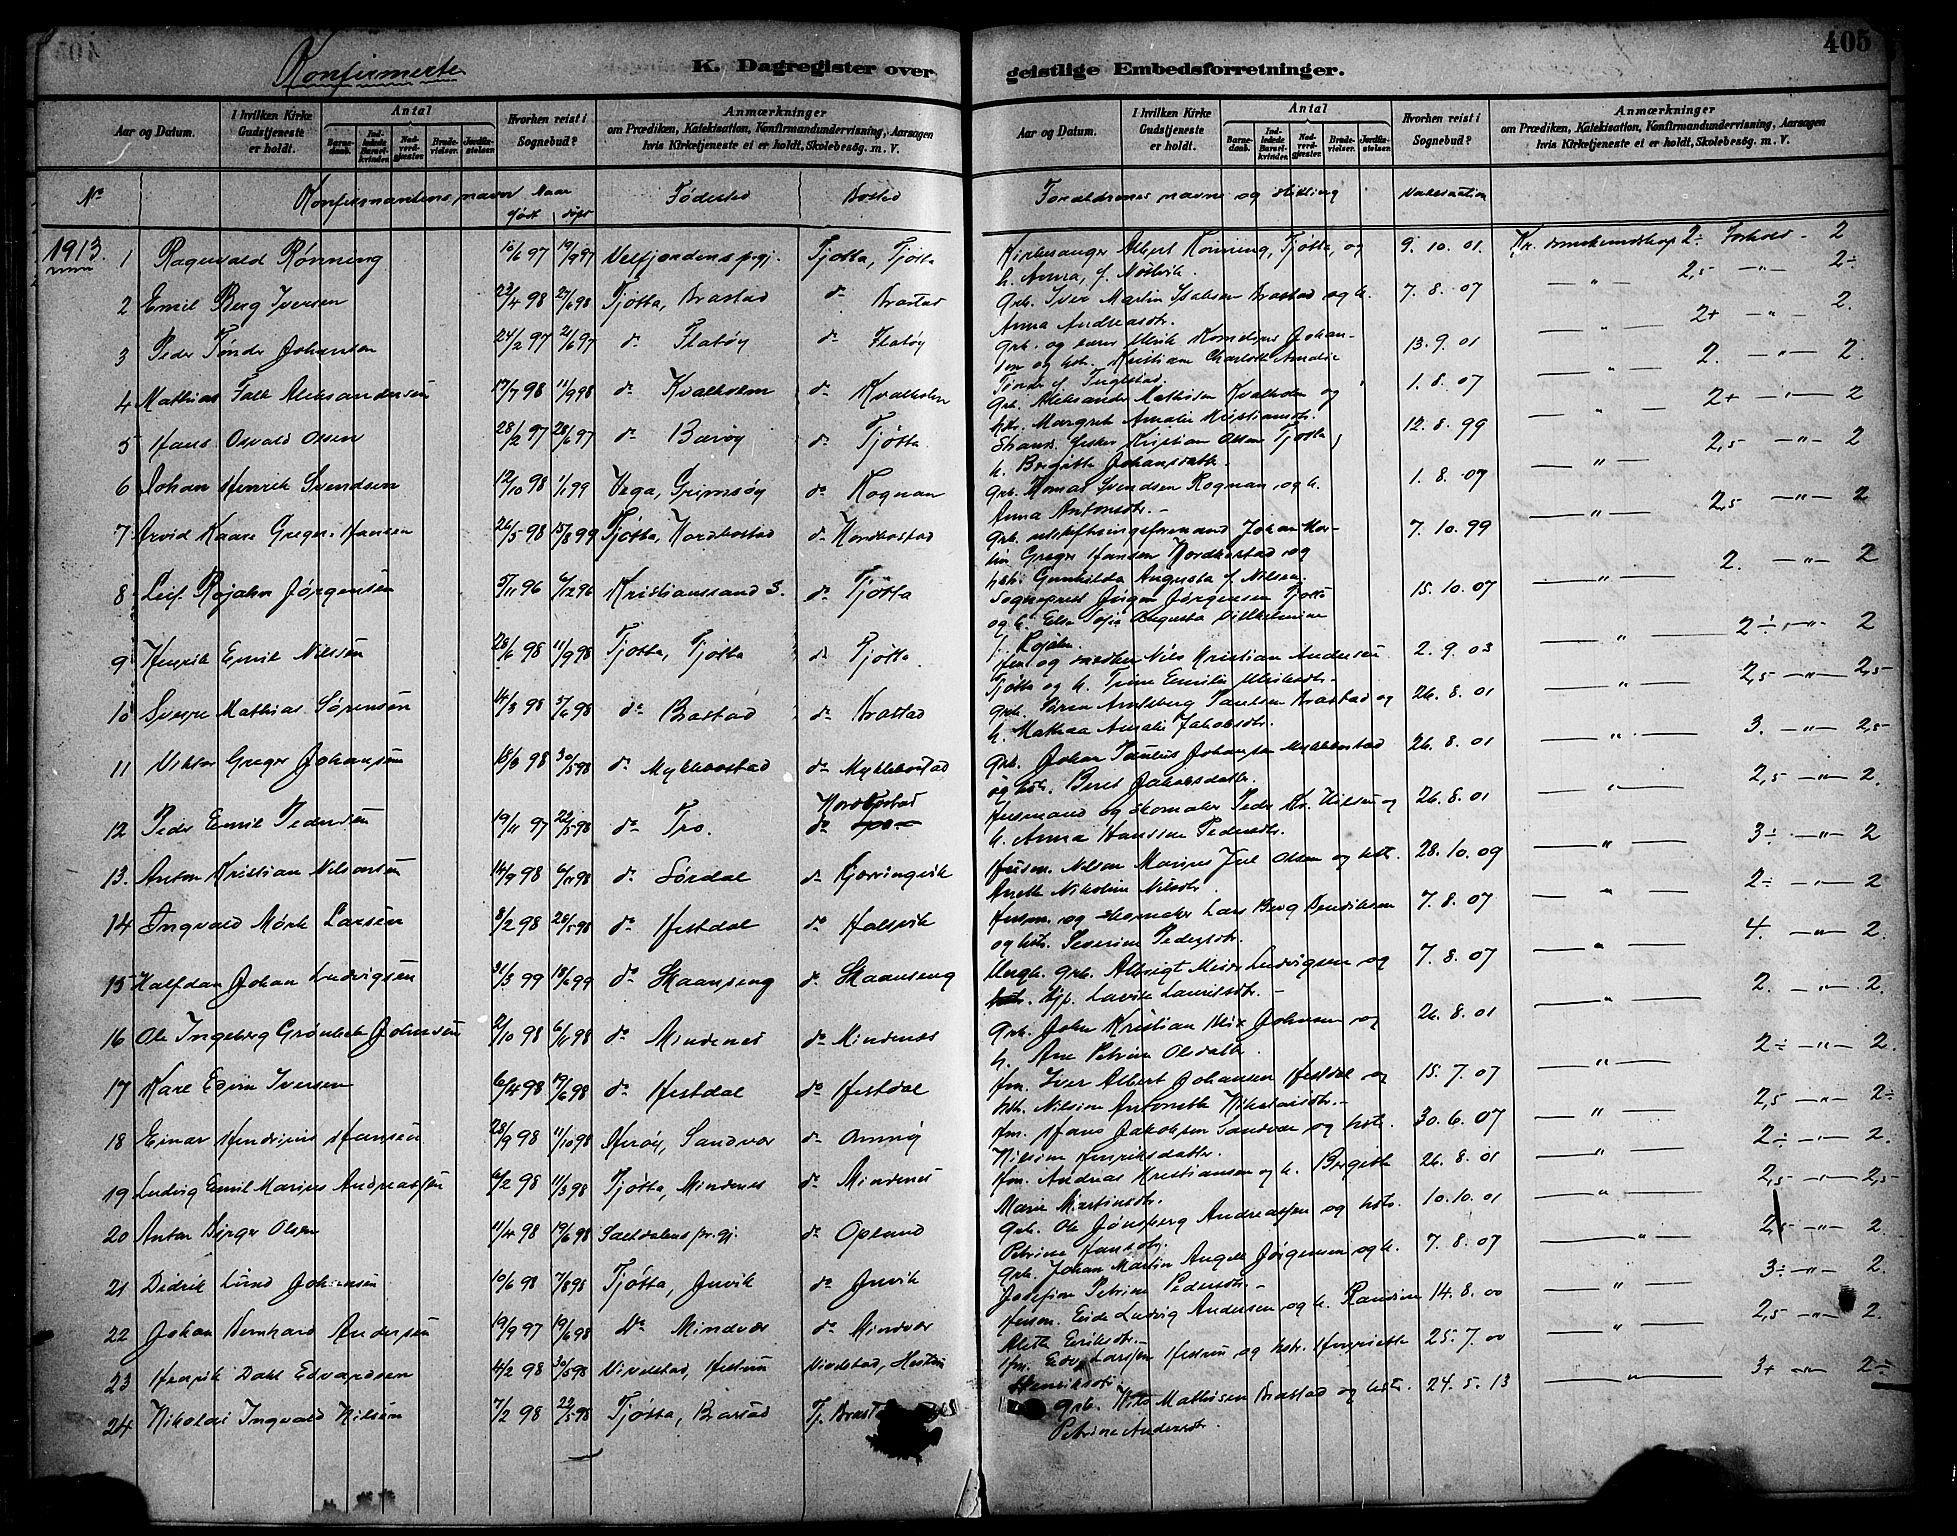 405
Konfirmerte
K. Dagregister over
geistlige Embedsforretninger.
Aar og Datum.
I hvilken Kirke Gudstjeneste er holdt.
Antal
Barnedaab.
Indledede Barselkvinder.
Nadverdgjester.
Brudevielser.
Jordfæstelser.
Hvorhen reist i Sognebud?
Anmærkninger
om Prædiken, Katekisation, Konfirmandundervisning, Aarsagen
hvis Kirketjeneste ei er holdt, Skolebesøg. m. V.
Aar og Datum.
I hvilken Kirke Gudstjeneste er holdt.
Antal
Barnedaab.
Indledede Barselkvinder.
Nadverdgjester.
Brudevielser.
Jordfæstelser.
Hvorhen reist i Sognebud?
Anmærkninger
om Prædiken, Katekisation, Konfirmandundervisning, Aarsagen
hvis Kirketjeneste ei er holdt, Skolebesøg. m. V.
No Konfirmantens navn Naar født døpt Fødested Bosted
Forældrenes navne og stilling Vaksination
1913.
1 Ragnvald Rønning 16/6 97 19/9 97 Velfjordens prgj. Tjøtta, Tjøtta
2 Emil Berg Iversen 22/4 98 21/6 98 Tjøtta, Brastad do Brastad
3 Peder Tønder Johansen 24/2 97 21/6 97 do Flatøy do Flatøy
4 Mathias Falk Aleksandersen 17/7 98 11/9 98 do Kvalholm do Kvalholm
5 Hans Osvald Olsen 28/2 97 28/6 97 do Barøy do Tjøtta
6 Johan Henrik Svendsen 12/10 98 1/1 99 Vega, Grimsøy do Rognan
7 Arvid Kaare Greger Hansen 26/5 98 15/8 99 Tjøtta, Nordbostad do Nordbostad
8 Leif Rojahn Jørgensen 5/11 96 6/12 96 Kristianssand S. do Tjøtta
9 Henrik Emil Nilsen 28/6 98 11/9 98 Tjøtta, Tjøtta do Tjøtta
10 Sverre Mathias Sørensen 14/3 98 5/6 98 do Brastad do Brastad
11 Viktor Greger Johansen 18/3 98 30/5 98 do Myklebostad do Myklebostad
12 Peder Emil Pedersen 19/11 97 22/5 98 do Tro. do Nordbostad
13. Anton Kristian Nilsen 14/9 98 6/11 98 do Sørdal do Kjærringvik
14 Ingvald Mørk Larsen 8/2 98 20/5 98 do Hestdal do Halsvik
15 Halfdan Johan Ludvigsen 31/3 99 18/6 99 do Skaanseng do Skaanseng
16 Ole Ingeberg Grønbech Johnsen 2/10 98 6/11 98 do Mindenes do Mindenes
17 Kare Egim Iversen 6/4 98 19/6 98 do Hestdal do Hestdal
18 Einar Hansen 28/9 98 11/10 98 Herøy, Sandvær do
19 Ludvig Emil Marius Andreassen 6/2 98 11/3 98 Tjøtta, Mindenes do Mindenes
20 Anton Birger Olsen 11/4 98 19/6 98 Saltdalens prgj. do Opland
21 Didrik Lund Johansen 10/6 98 7/8 98 Tjøtta, Invik do Invik
22 Johan Bernhard Andersen 19/9 97 19/6 98 Do Mindvær do Mindvær
23 Henrik Dahl Edvardsen 4/2 98 30/5 98 Vivelstad, Hestun Vivelstad, Hestun
24 Nikolai Ingvald Nilsen 7/2 98 22/5 98 Tjøtta, Brastad Tj. Brasta
Kirkesanger Albert Rønning, Tjøtta, og 9. 10. 01. Kr. domskundskap 2÷ Forhold - 2
h. Anna, f. Nøstvik.
Grb. Iver Martin Isaksen Brastad og h. 7. 8. 07 2,5 2÷
Anna Andreasdtr.
Grb. og lærer Ulrik Kornelius Johan- 13. 9. 01 2+ 2.
sen og hstr. Kristiane Charlotte Amalie
Tønder f. Inglestad.
Grb. Aleksander Mathisen Kvalholm og 1. 8. 07 2. 2.
hstr. Margret Amalie Kristiansdtr.
Strands. fisker Kristian Olsen Tjøtta, 12. 8. 99 2+ 2
h. Brigitte Johansdatter.
Grb. Tomas Svendsen Rognan, og h. 1. 8. 07 2,5 2
Anna Antonsdtr. -
Grb. utskiftningsformand Johan Mar- 7. 10. 99 2,5 2
tin Greger Hansen Nordbostad og
hstr. Gunhilda Augusta f. Nilsen.
Sogneprest Jørgen Jørgensen Tjøtta 15. 10. 07 2. 2
og h. Elen Sofie Augusta Vilhelmine
f. Rojahn.
Nils Kristian Andersen 2. 9. 03 2÷ 2
Tjøtta og h. Trine Emilie
Grb. Søren Arnlsberg Paulsen Brastad og 26. 8. 01 2,5 2,5
h. Mathea Amalie Jakobsdtr.
Grb. Johan Paulus Johansen Myklebostad 26. 8. 01 3. 2,5
og hstr. Beret Jakobsdatter.
Husmand og skomaker Peder Kr. Nilsen og 26. 8. 01 2,5 2.
h. Anna Hansine Pedersdtr.
Husm. Nilsen Marius Juel Olsen og hstr. 28. 10. 09 3÷ 2
Anette Nikoline Nilsdtr.
Husm. og skomaker Lars Berg Benriksen 7. 8. 07 2÷ 2
og hstr. Severine Pedersdtr.
Ungk. grb. Albrigt Meier Ludvigsen og 7. 8. 07 4. 2.
Pip. Lavise Lauritsdtr. -
Grb. John Kristian Johnsen og 26. 8. 01 2. 2.
h. Ane Petrine Olsdatter.
Hm. Iver Albert Johansen Hestdal og 15. 7. 07 2÷ 2.
hstr. Nilsine Antonette Nikolaisdtr. -
Hm. Hans Jakobsen Sandvær og hstr. 30. 6. 07 2,5 2÷
Nilsine Henriksdatter.
Hm. Andreas Kristiansen og h. Bergitte 26. 8. 01 2÷ 2.
Marie Martinsdtr.
Grb. Ole Jønsberg Andreassen og hstr. 10. 10. 01 2,5 2,5
Petrine Hansdtr.
Grb. Johan Martin Angell Jørgensen og h. 7. 8. 07 2,5 2
Josefine Petrine Pedersdtr. -
Husm. Eide Ludvig Andersen og h. Randine 14. 8. 00 3÷ 2.
Aleth Eriksdtr.
Hm. Edv. Larssen Hestun og hstr. Henriette 25. 7. 00 2,5 2.
Henriksdtr.
Grb. Nils Mathisen Brastad og hstr. 24. 5. 13 3+ 2÷
Petrine Andersdtr.